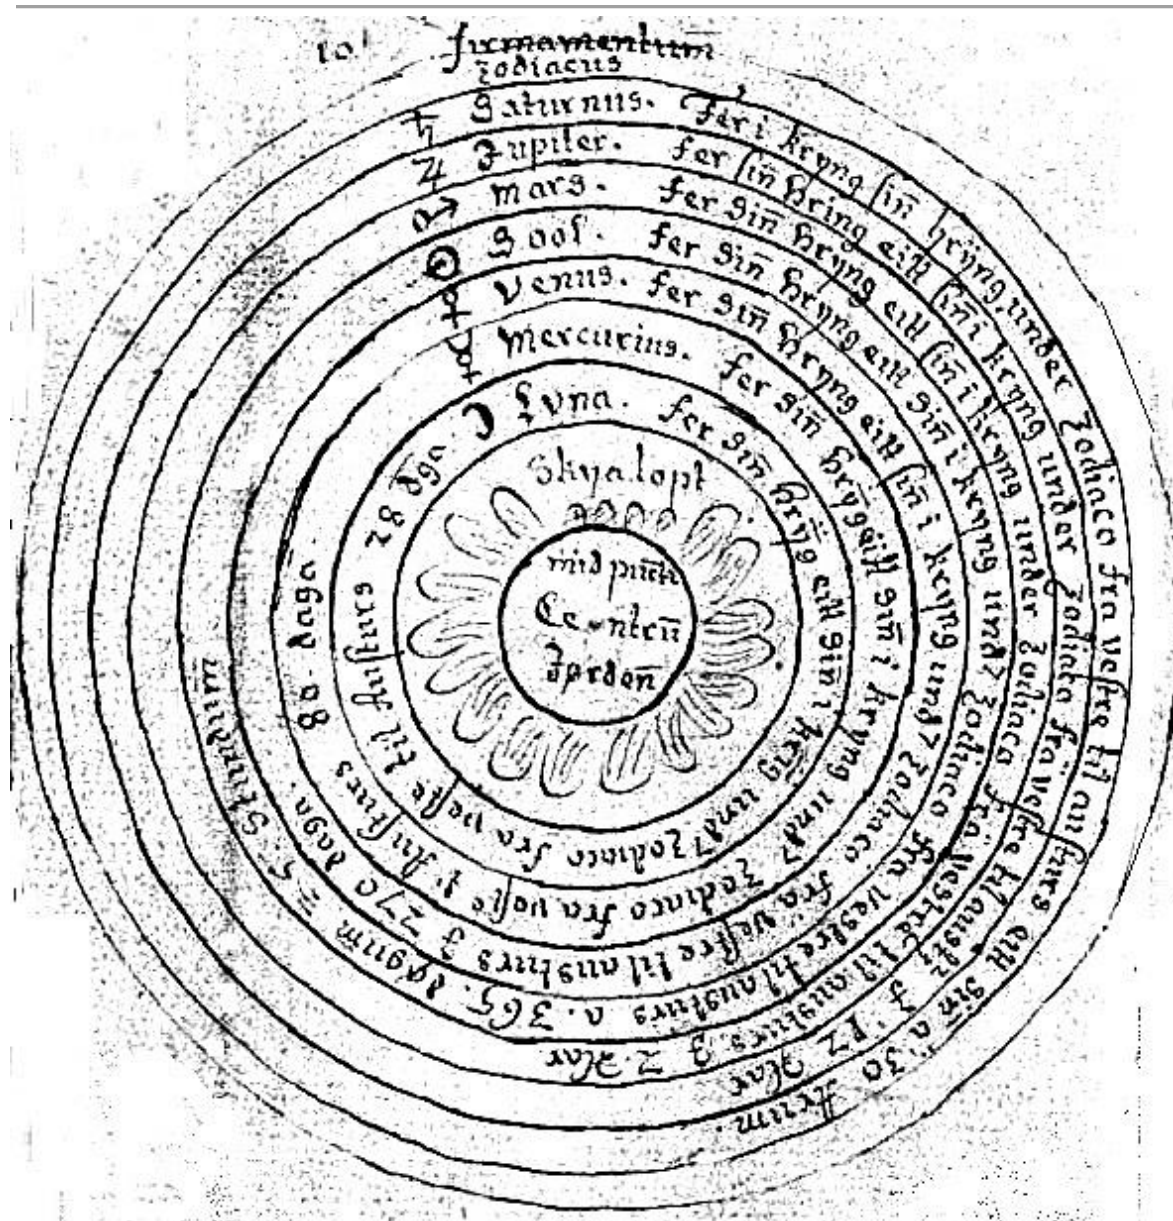 10.
firmamentum
Zodiacus
♄ Saturnus. Fer i kryng sin̄ hryng under Zodiaco fra vestre til austurs eitt sin̄ a 30 Arum.
♃ Jupiter. fer sin̄ hring eitt sin̄ i kryng under Zodiaco fra vestre til austr 12 Aar
♂ Mars. fer sin̄ hryng eitt sin̄ i kryng under Zodiaco fra vestre til austurs. 2 Aar
☉ Sool. fer sin̄ hryng eitt sin̄ i kryng und Zodiaco fra vestre til austurs a. 365. dagum 5. Stundum̄
♀ Venus. fer sin̄ hryng eitt sin̄ i kryng und Zodiaco fra vestre til austurs 270 daga.
☿ Mercurius. fer sin̄ hryng eitt sin̄ i kryng und Zodiaco fra veste Austurs 80. daga
☽ Luna. fer sin̄ hryng eitt sin̄ i kryng und Zodiaco fra veste til Austurs 28 dga.
Skya lopt
mid punct
Centru̅
Jorden̄